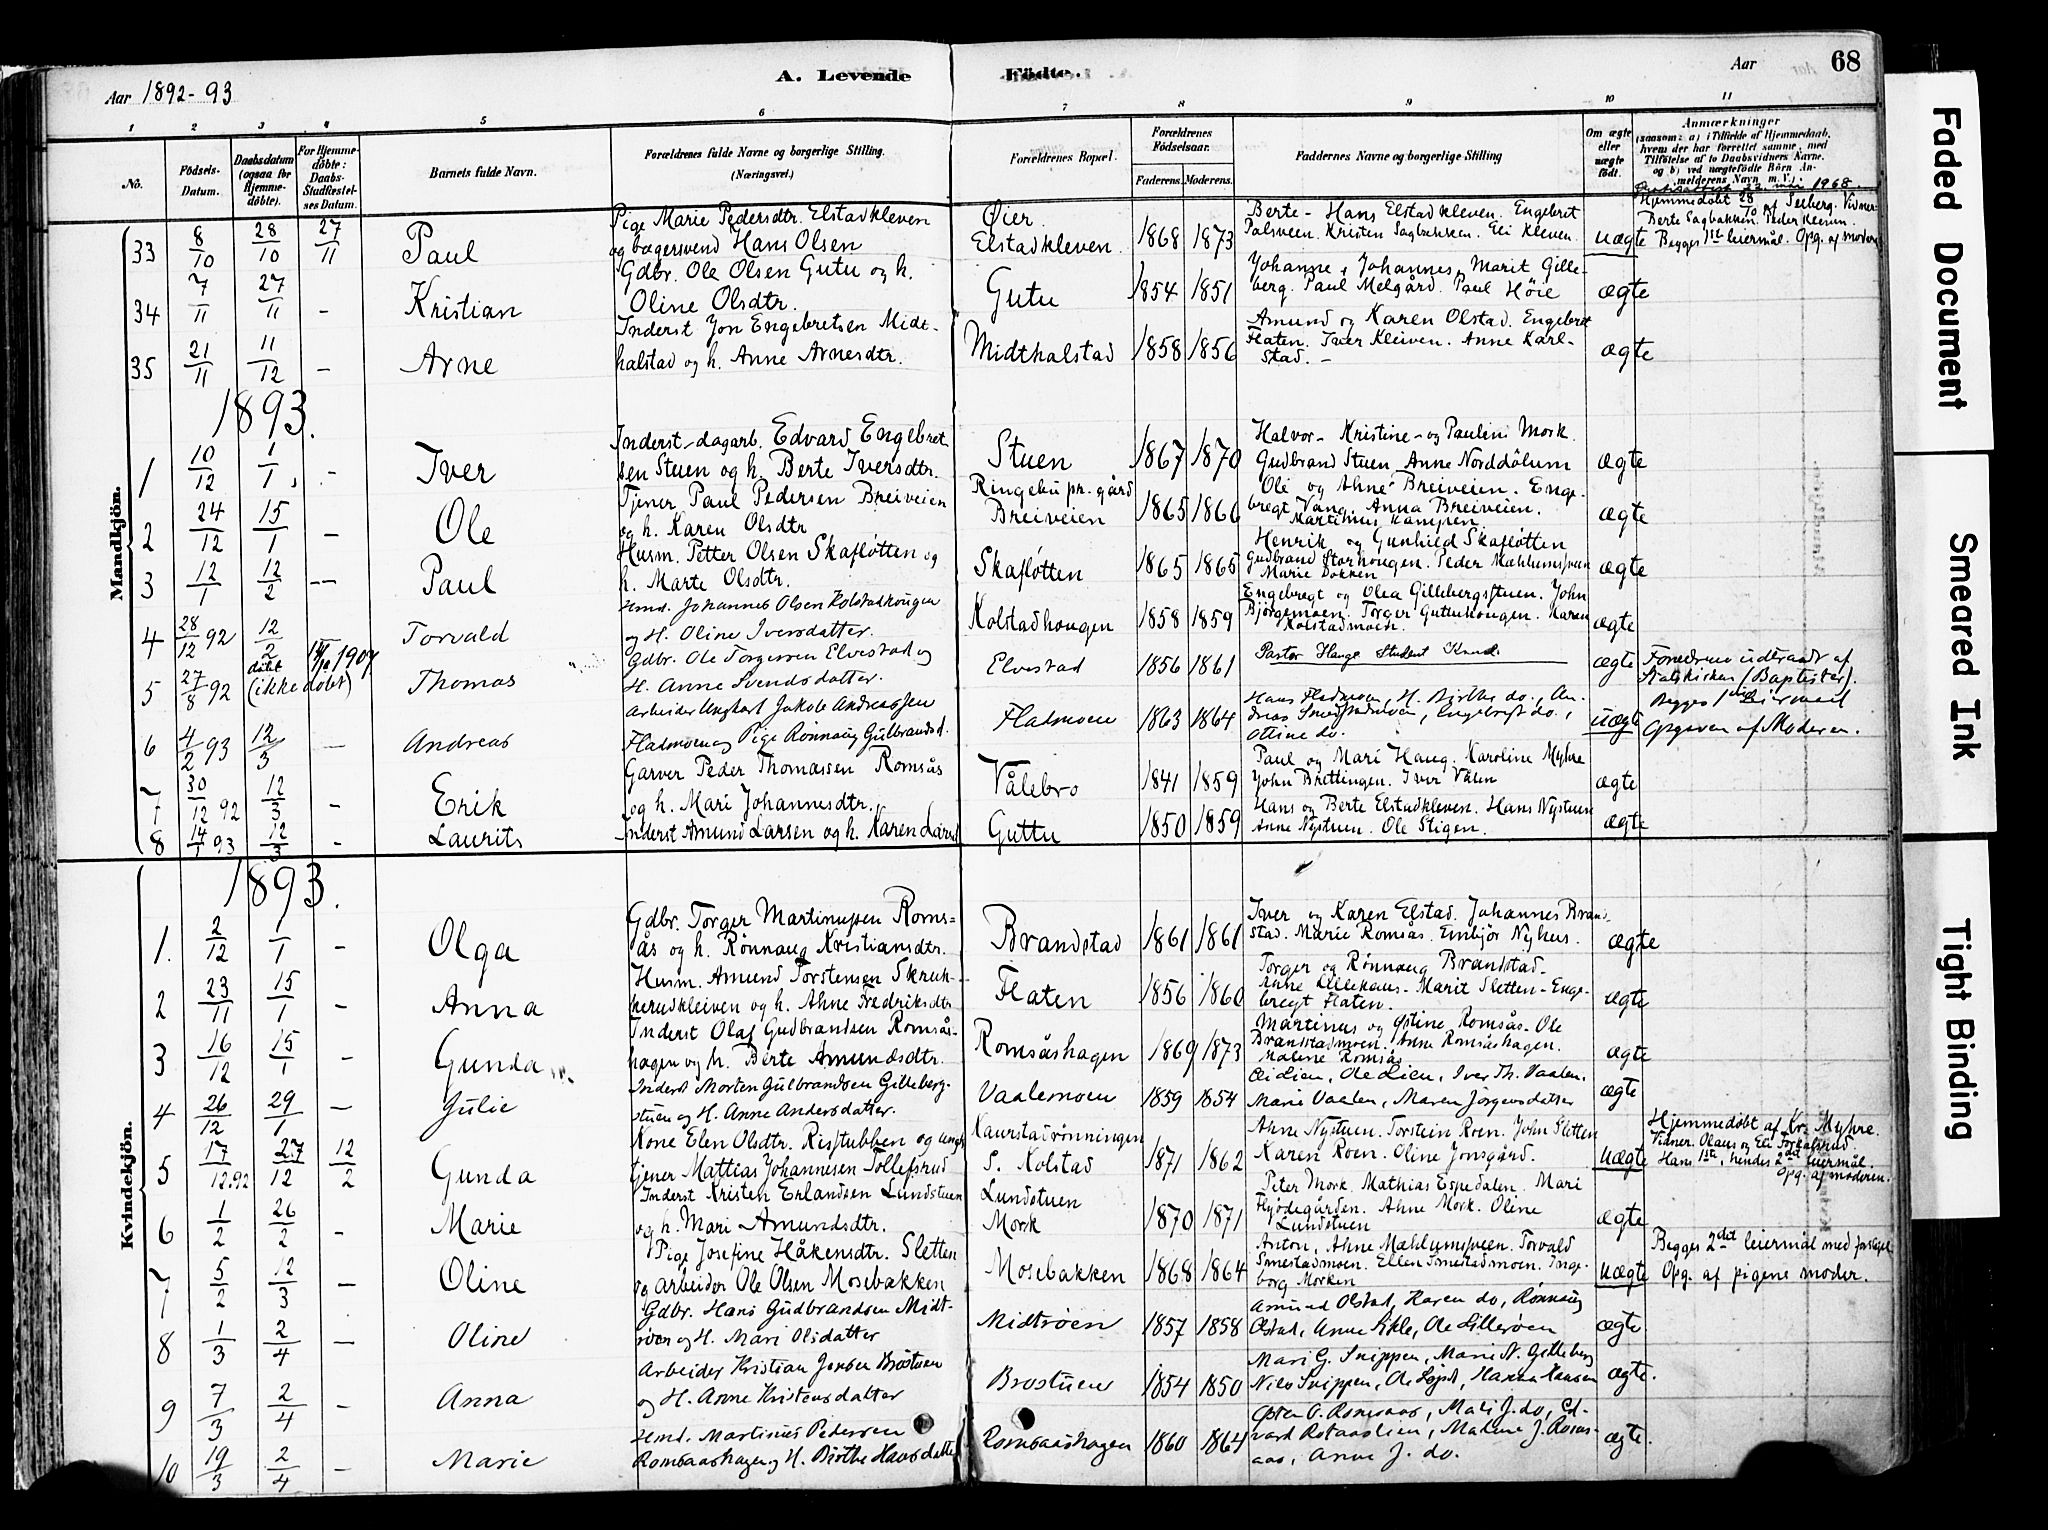 A. Levende Födte.
Aar 1892-93
Aar 68
1 2 3 4 5 6 7 8 9 10 11
No.
Födsels-Datum.
Daabsdatum (ogsaa for Hjemme-döbte).
For Hjemme-döbte: Daabs-Stadfæstelses Datum.
Barnets fulde Navn.
Forældrenes fulde Navne og borgerlige Stilling. (Næringsvei.)
Forældrenes Bopæl.
Forældrenes Födselsaar.
Faderens. Moderens.
Faddernes Navne og borgerlige Stilling
Om ægte eller uægte födt.
Anmærkninger
(saasom: a) i Tilfælde af Hjemmedaab, hvem der har forrettet samme, med Tilföielse af to Daabsvidners Navne, og b) ved uægtefödte Börn Anmelderens Navn m. V.)
22. mai 1968
Mandkjön.
33 8/10 28/10 27/11 Paul
Pige Marie Pedersdtr. Elstadkleven
og bagersvend Hans Olsen
Øier
Elstadkleven. 1868 1873
Berte - Hans Elstadkleven. Engebret
Palsveen. Kristen Sagbakken. Eli Kleven.
uægte
Hjemmedøbt 28/10 af Seeberg. Vidner
Berte Sagbakken. Peder Kleven.
Begges 1ste leiermål. Opg. af moderen
34 7/11 27/11 - Kristian
Gdbr. Ole Olsen Gutu og h.
Oline Olsdtr.
Gutu 1854 1851
Johanne, Johannes, Marit Gille-
berg. Paul Melgård. Paul Höie
ægte
35 21/11 11/12 - Arne
Inderst Jon Engebretsen Midt-
halstad og h. Anne Arnesdtr.
Midthalstad 1858 1856
Amund og Karen Olstad. Engebret
Flaten. Iver Kleiven. Anne Karl-
stad. -
ægte
1893.
1 10/12 1/1 - Iver
Inderst-dagarb. Edvard Engebret-
sen Stuen og h. Berte Iversdtr.
Stuen 1867 1870
Halvor - Kristine - og Pauline Mork.
Gudbrand Stuen. Anne Norddålum
ægte
2 24/12 15/1 - Ole
Tjener Paul Pedersen Breiveien
og h. Karen Olsdtr
Ringebu pr. gård
Breiveien 1865 1866
Ole og Ahne Breiveien. Enge-
bregt Vang. Anna Breiveien.
Martinus Kampen
ægte
3 12/1 12/2 -- Paul
Husm. Petter Olsen Skafløtten og
h. Marte Olsdtr.
Skafløtten 1865 1865
Henrik og Gunhild Skafløtten
Gudbrand Storhougen. Peder Mæhlumsveen
Marie Bakken
ægte
4 28/12 92 12/2 Torvald
Hmd. Johannes Olsen Kolstadhougen
og H. Oline Iversdatter.
Kolstadhougen 1858 1859
Engebregt og Olea Gillebergstuen. John
Björgemoen. Torger Guttuhougen. Karen
Kolstadmoen.
ægte
5 27/8 92 døbt (ikke døbt) 1907 Thomas
Gdbr. Ole Torgersen Elvestad og
H. Anne Svendsdatter.
Elvestad 1856 1861
Pastor Hauge Student
ægte
Forældrene udtraadt af
Statskirken (Baptister).
6 4/2 93 12/3 - Andreas
Arbeider Ungkarl Jakob Andreassen
Fladmoen og Pige Rønnaug Gulbrandsd.
Fladmoen 1863 1864
Hans Fladmoen, H. Birthe do., An-
dreas Smestadmoen, Engebregt do.,
Ottine do.
uægte
Begges 1ste Leiermaal
Opgiven af Moderen.
7 30/12 92 12/3 - Erik
Garver Peder Thomassen Romsås
og h. Mari Johannesdtr.
Vålebro 1841 1859
Paul og Mari Haug. Karoline Myhre
John Brettingen. Iver Vålen
ægte
8 14/1 93 12/3 - Laurits
Inderst Amund Larsen og h. Karen Larsd.
Guttu 1850 1859
Hans og Berte Elstadkleven. Hans Nystuen
Anne Nystuen. Ole Stigen.
ægte
Kvindekjön.
1893.
1. 2/12 1/1 - Olga
Gdbr. Torger Martinussen Roms-
ås og h. Rønnaug Kristiansdtr.
Brandstad 1861 1861
Iver og Karen Elstad. Johannes Brand-
stad. Marie Romsås. Embjör Nyhus.
ægte
2 23/11 15/1 - Anna
Husm. Amund Torstensen Skruk-
kerudkleiven og h. Ahne Fredriksdtr
Flaten 1856 1860
Torger og Rønnaug Brandstad.
Anne Lillehaus - Marit Sletten - Enge-
bregt Flaten.
ægte
3 16/12 15/1 - Gunda
Inderst Olaf Gudbrandsen Romsås-
hagen og h. Berte Amundsdtr.
Romsåshagen 1869 1873
Martinus og Østine Romsås. Ole
Brandstadmoen. Anne Romsåshagen.
Malene Romsås
ægte
4 26/12 29/1 - Julie
Inderst Morten Gulbrandsen Gilleberg-
stuen og H. Anne Andersdatter.
Vaalemoen 1859 1854
Ei Lien, Ole Lien, Iver Th. Vaalen.
Marie Vaalen, Maren Jörgensdatter
ægte
5 17/12.92 27/12 12/2 Gunda
Kone Elen Olsdtr. Risstubben og ungk.
tjener Mattias Johannesen Tollefsrud
Kaurstadrönningen
S. Kolstad 1871 1862
Ahne Nystuen. Torstein Roen. John Sletten
Karen Roen. Oline Jonsgård.
Uægte
Hjemmedøbt af Kr. Myhre.
Vidner. Olaus og Eli Torkalsrud
Hans 1ste, hendes 2det leiermål.
Opg. af moderen.
6 1/2 26/2 - Marie
Inderst Kristen Erlandsen Lundstuen
og h. Mari Amundsdtr.
Lundstuen
Mork 1870 1871
Peter Mork. Mathias Espedalen. Mari
Flyödegården. Ahne Mork. Oline
Lundstuen
ægte
7 5/2 12/3 - Oline
Pige Josefine Håkensdtr. Sletten
og arbeider Ole Olsen Mosebakken
Mosebakken 1868 1864
Anton, Ahne Mæhlumsveen. Torvald
Smestadmoen. Ellen Smestadmoen. Inge-
borg Morken
uægte
Begges 2det leiermål med
Opg. af pigens moder.
8 1/3 2/4 - Oline
Gdbr. Hans Gudbrandsen Midt-
röen og H. Mari Olsdatter
Midtröen 1857 1858
Amund Olstad, Karen do, Rønnaug
Olstad, Anne Sikle, Ole Lilleröen
ægte
9 7/3 2/4 - Anna
Arbeider Kristian Jensen Brostuen
og H. Anne Kristensdatter
Brostuen 1854 1850
Mari G. Snippen, Marie N. Gilleberg
Nils Snippen, Ole Löpst, Karen Hansen
ægte.
10 19/3 2/4 - Marie
Hmd. Martinus Pedersen
Romsaashagen og H. Birthe Hansdatter
Romsaashagen 1860 1864
Østen O. Romsaas, Mari J. do, Ed-
vard Rostaaslien, Malene J. Roms-
aas, Anne J. do.
ægte.
Faded Document
Smeared Ink
Tight Binding